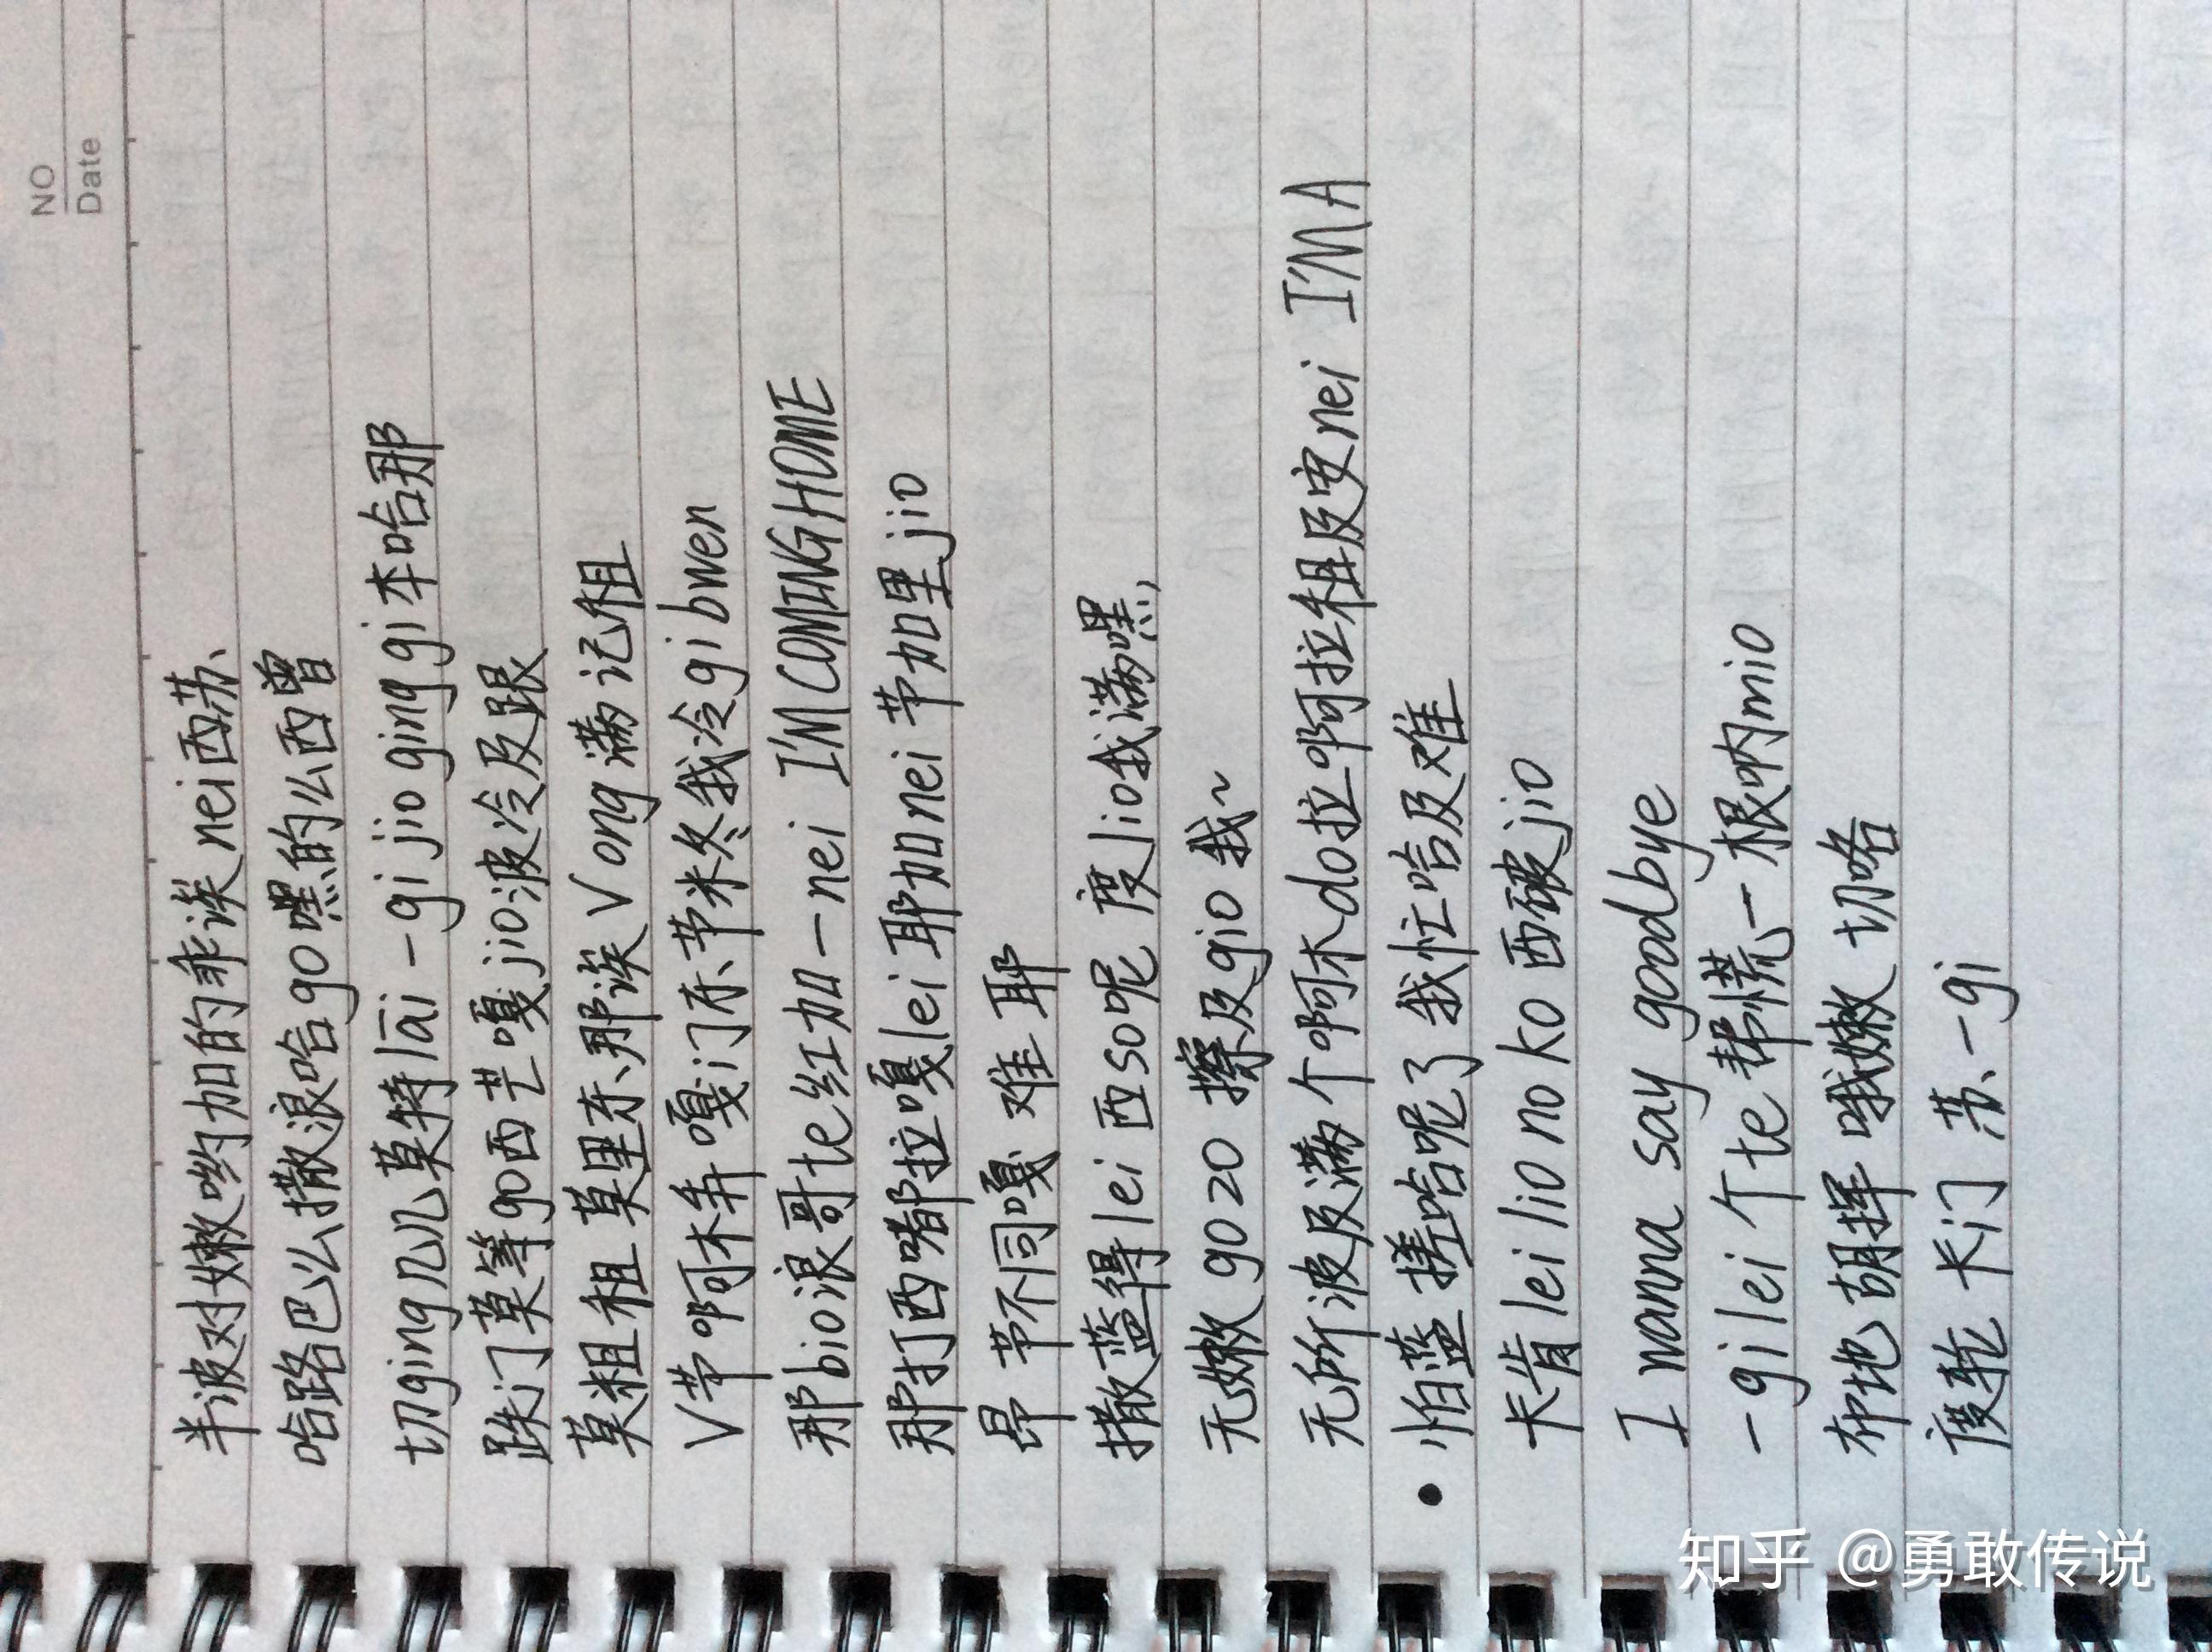 NO
Date
半波对嫩哟加的乖诶nei西苏、
哈路巴么撒浪哈go嘿的么西曾
切ging几几莫特lāi一gi jio ging gi本哈那
跌门莫等go西芒嘎jio波冷及跟
莫粗租 莫里东、那诶Vong满记租
V节啊木弄嘎门东、节米冬我冷gi bwen
那bio浪哥te红加一nei I'M COMING HOME
那打西嘟拉嘎lei耶加nei节加里jio
昂 节不同嘎 难耶
撒蓝得lei西so呢 度lio我满嘿,
无嫩gozo擦及gio我~
无所波及满个啊木do拉啊拉租及安nei I'M A
•怕蓝搓哈呢了我忙哈及难
卡肯lei lio no ko 西破jio
I wanna say goodbye
一gi lei个te帮慌一根呐mio
布地胡挥哦嫩 切咯
度轮 卡门 苏、一gi
知乎 @勇敢传说